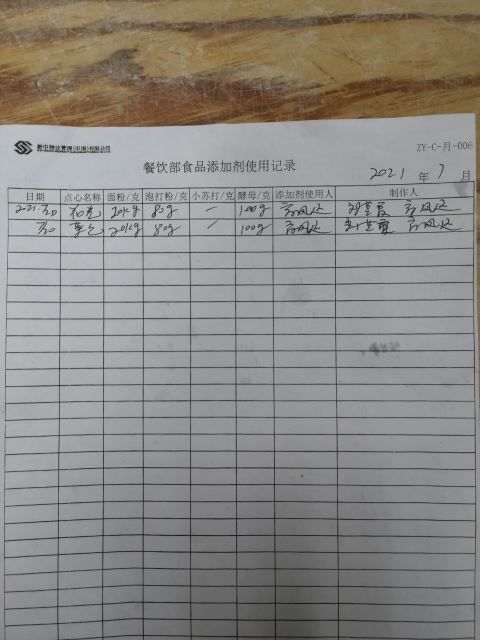 新中物业管理(中国)有限公司
ZY-C-月-006
餐饮部食品添加剂使用记录
2021 年 7 月
日期 点心名称 面粉/克 泡打粉/克 小苏打/克 酵母/克 添加剂使用人 制作人
2021.7/20 20kg 80g / 100g
7/20 20kg 80g / 100g